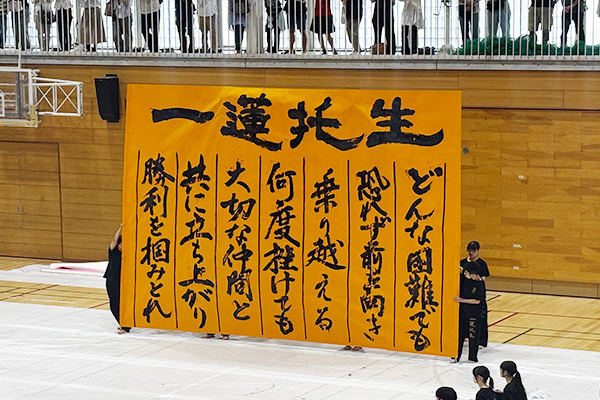 一蓮托生
どんな困難でも
恐れず前を向き
乗り越える
何度挫けても
大切な仲間と
共に立ち上がり
勝利を掴みとれ